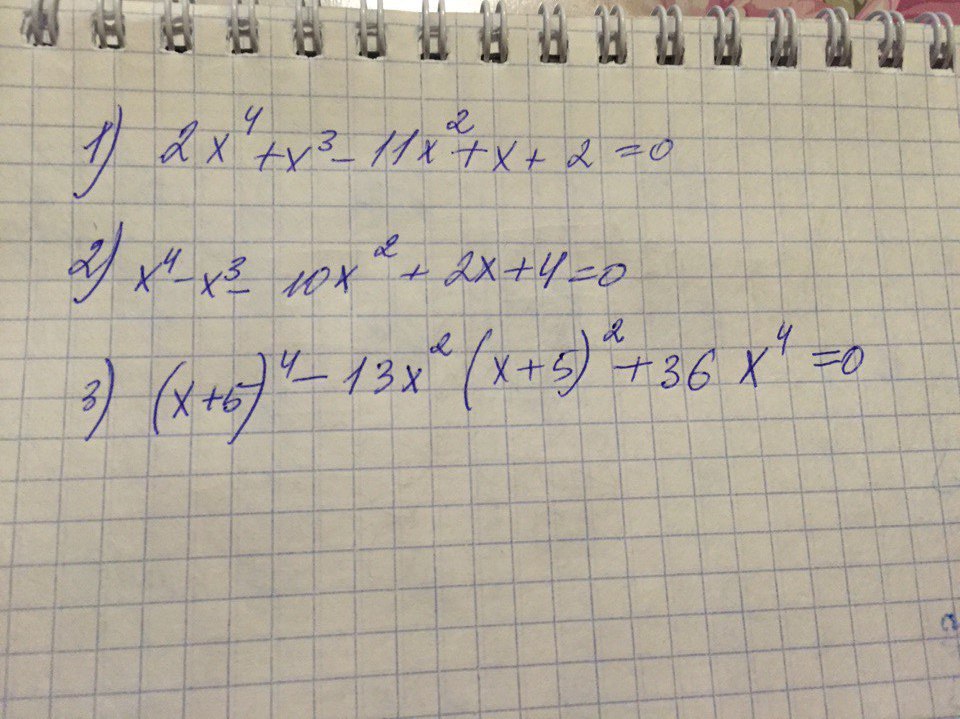 1) 2x⁴+x³-11x²+x+2=0
2) x⁴-x³-10x²+2x+4=0
3) (x+5)⁴-13x²(x+5)²+36x⁴=0